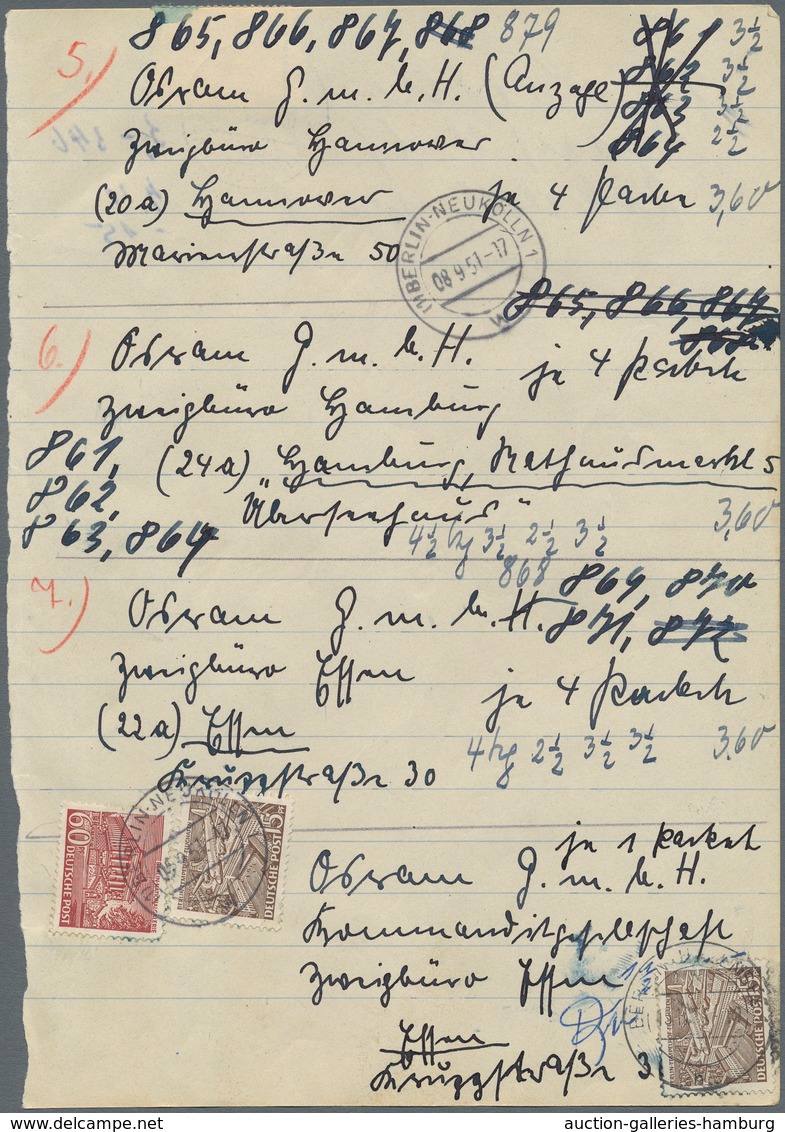 865, 866, 867, 868 879
861 3½
5.)
862 3½
Osram G. m. b. H. (Anzage)
863
864 2½
Zweigbüro Hannover
(20a) Hannover je 4 Pakete 3,60
Marienstraße 50
BERLIN-NEUKÖLLN 1
08.9.51-17
865, 866, 867
868
6.)
Osram G. m. b. H.
je 4 Pakete
Zweigbüro Hamburg
861,
(24a) Hamburg, Rathausmarkt 5
862,
"Überseehaus"
863, 864
4½ kg 3½ 2½ 3½ 3,60
868 869, 870
7.)
Osram G. m. b. H. 871, 872
Zweigbüro Essen
je 4 Pakete
(22a) Essen
4 kg 2½ 3½ 3½ 3,60
Kruppstraße 30
60
DEUTSCHE POST
15
DEUTSCHE POST
je 1 Paket
Osram G. m. b. H.
Kommanditgesellschaft
Zweigbüro Essen
Essen
Kruppstraße 3
DEUTSCHE POST
auction-galleries-hamburg